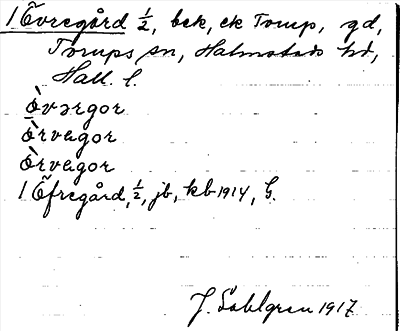 1 Övregård 1/2, bek, ek Torup, gd,
Torups sn, Halmstads hd,
Hall. l.
Òvərgor
Òrvagor
Òrvagor
1 Öfregård, 1/2, jb, kb 1914, G.
J. Sahlgren 1917